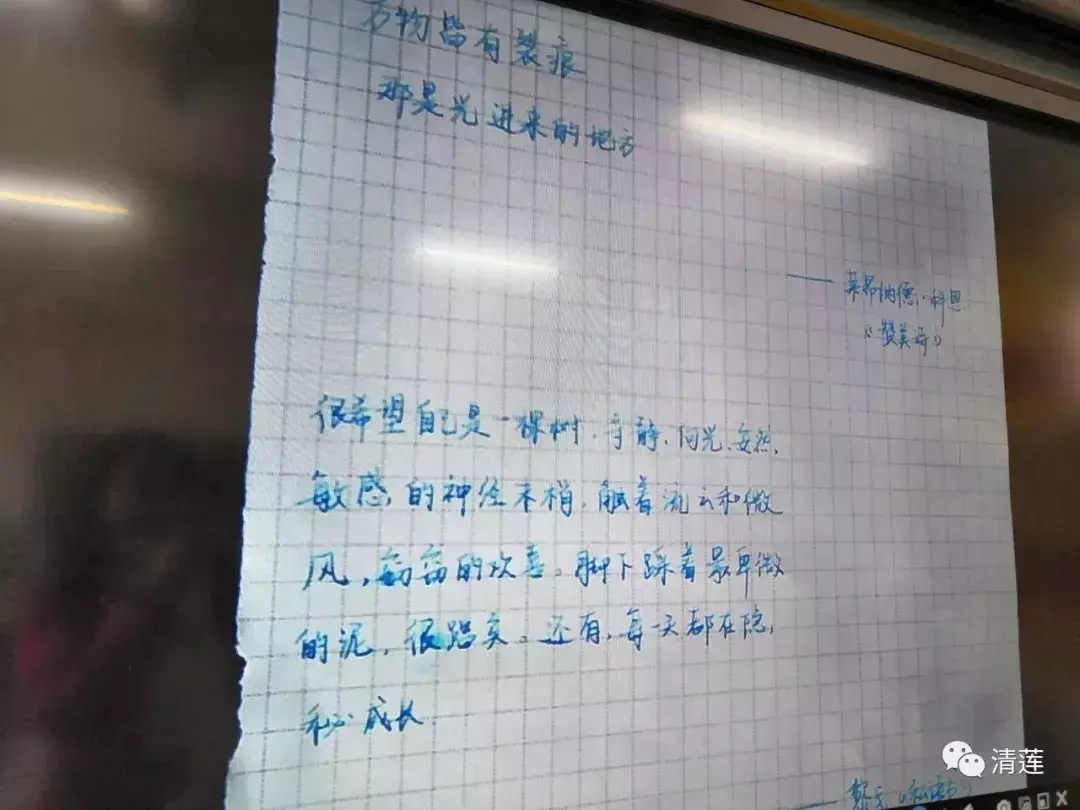 万物皆有裂痕
那是光进来的地方
—— 莱昂纳德·科恩
《赞美诗》
很希望自己是一棵树，守静、向光、安然，
敏感的神经末梢，触着流云和微
风，窃窃的欢喜。脚下踩着最卑微
的泥，很踏实。还有，每一天都在隐
秘成长
清莲